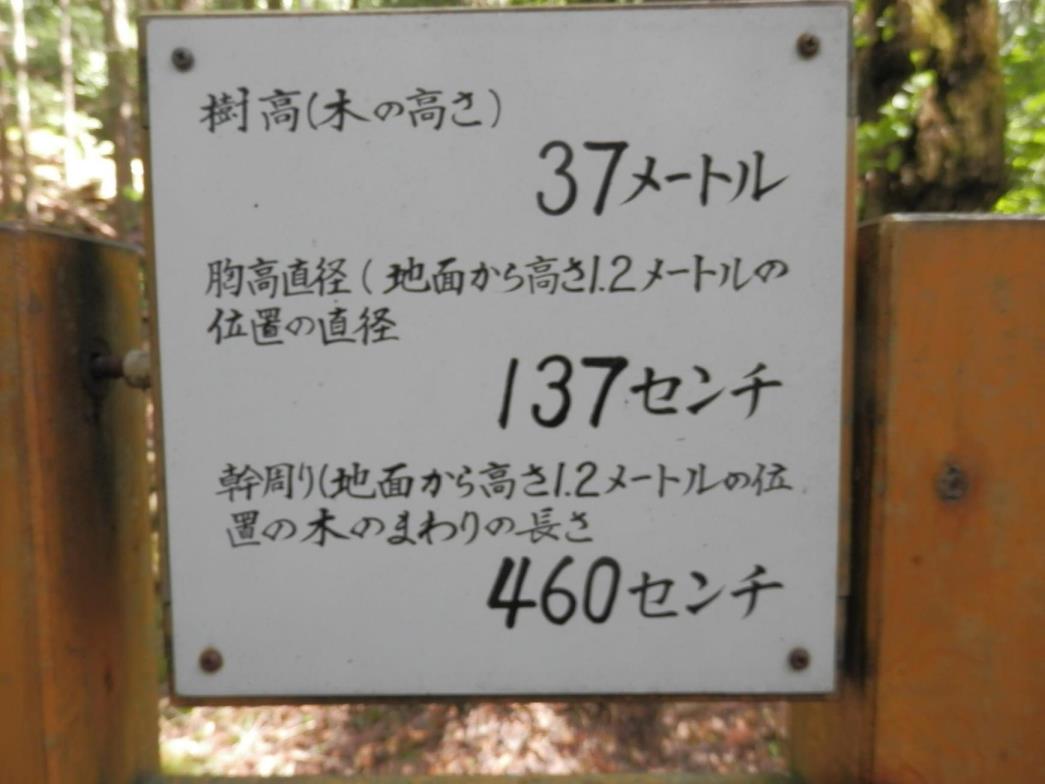 樹高(木の高さ)
37メートル
胸高直径(地面から高さ1.2メートルの
位置の直径
137センチ
幹周り(地面から高さ1.2メートルの位
置の木のまわりの長さ
460センチ